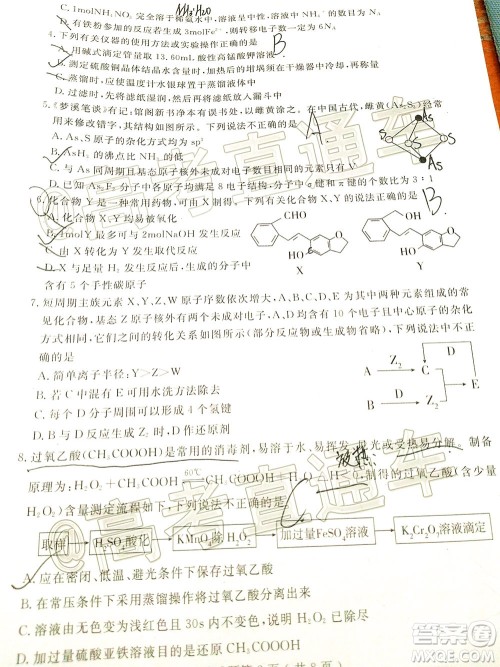 C. 1molNH₄NO₃ 完全溶于稀氨水中，溶液呈中性，溶液中 NH₄⁺ 的数目为 Nₐ
D. 有铁粉参加的反应若生成 3molFe²⁺，则转移电子数一定为 6Nₐ
4. 下列有关仪器的使用方法或实验操作正确的是
A. 用碱式滴定管量取 13.60mL 酸性高锰酸钾溶液
B. 测定硫酸铜晶体结晶水含量时，加热后的坩埚须在干燥器中冷却
C. 蒸馏时，应使温度计水银球置于蒸馏液体中
D. 过滤时，先将滤纸湿润，然后再将滤纸放入漏斗中
B
5.《梦溪笔谈》有记，馆阁新书净本有误书处，以雌黄涂之。在古代，雌黄(As₂S₃)经
常用来修改错字，其结构如图所示。下列说法不正确的是
A. As、S 原子的杂化方式均为 sp³
B. AsH₃ 的沸点比 NH₃ 的低
C. 与 As 同周期且基态原子核外未成对电子数相同的元素只有 V
D. 已知 As₂F₂ 分子中各原子均满足 8 电子结构，分子中 σ 键和 π 键的个数比为 3：1
A
As
S
S
S
As
6. 化合物 Y 是一种常用药物，可由 X 制得。下列有关化合物 X、Y 的说法正确的是
A. 化合物 X、Y 均易被氧化
B. 2molY 最多可与 2molNaOH 发生反应
C. 由 X 转化为 Y 发生取代反应
D. X 与足量 H₂ 发生反应后，生成的有机物中
含有 5 个手性碳原子
B
CHO
HO
O
O
X
OH
HO
O
O
Y
7. 短周期主族元素 X、Y、Z、W 原子序数依次增大，A、B、C、D、E 是由其中的两种元素组成的常
见化合物，基态 Z 原子核外有两个未成对电子，A、D 均为含有 10 个电子且中心原子的杂化
方式相同，它们之间的转化关系如图所示（部分反应物或生成物省略）。下列说法中不正
确的是
A. 简单离子半径：
B. 若 C 中混有 E 可用水洗方法除去
D. B 与 D 反应，D 作还原剂
A
Z₂
C
D
E
B
Z₂
8. 过氧乙酸(CH₃COOOH)是常用的消毒剂，易溶于水、易挥发、见光或受热易分解。制备
60℃
制得的过氧乙酸(含少量
H₂O₂)含量测定流程如下，下列说法不正确的是
取样
H₂SO₄ 酸化
KMnO₄ 除 H₂O₂
加过量 FeSO₄ 溶液
K₂Cr₂O₇ 溶液滴定
A. 应在密闭、低温、避光条件下保存过氧乙酸
B. 在实验中采用蒸馏操作将过氧乙酸分离出来
C. 当溶液刚好变为浅红色且 30s 内不变色，说明 H₂O₂ 已除尽
D. 加过量硫酸亚铁溶液目的是还原 CH₃COOOH